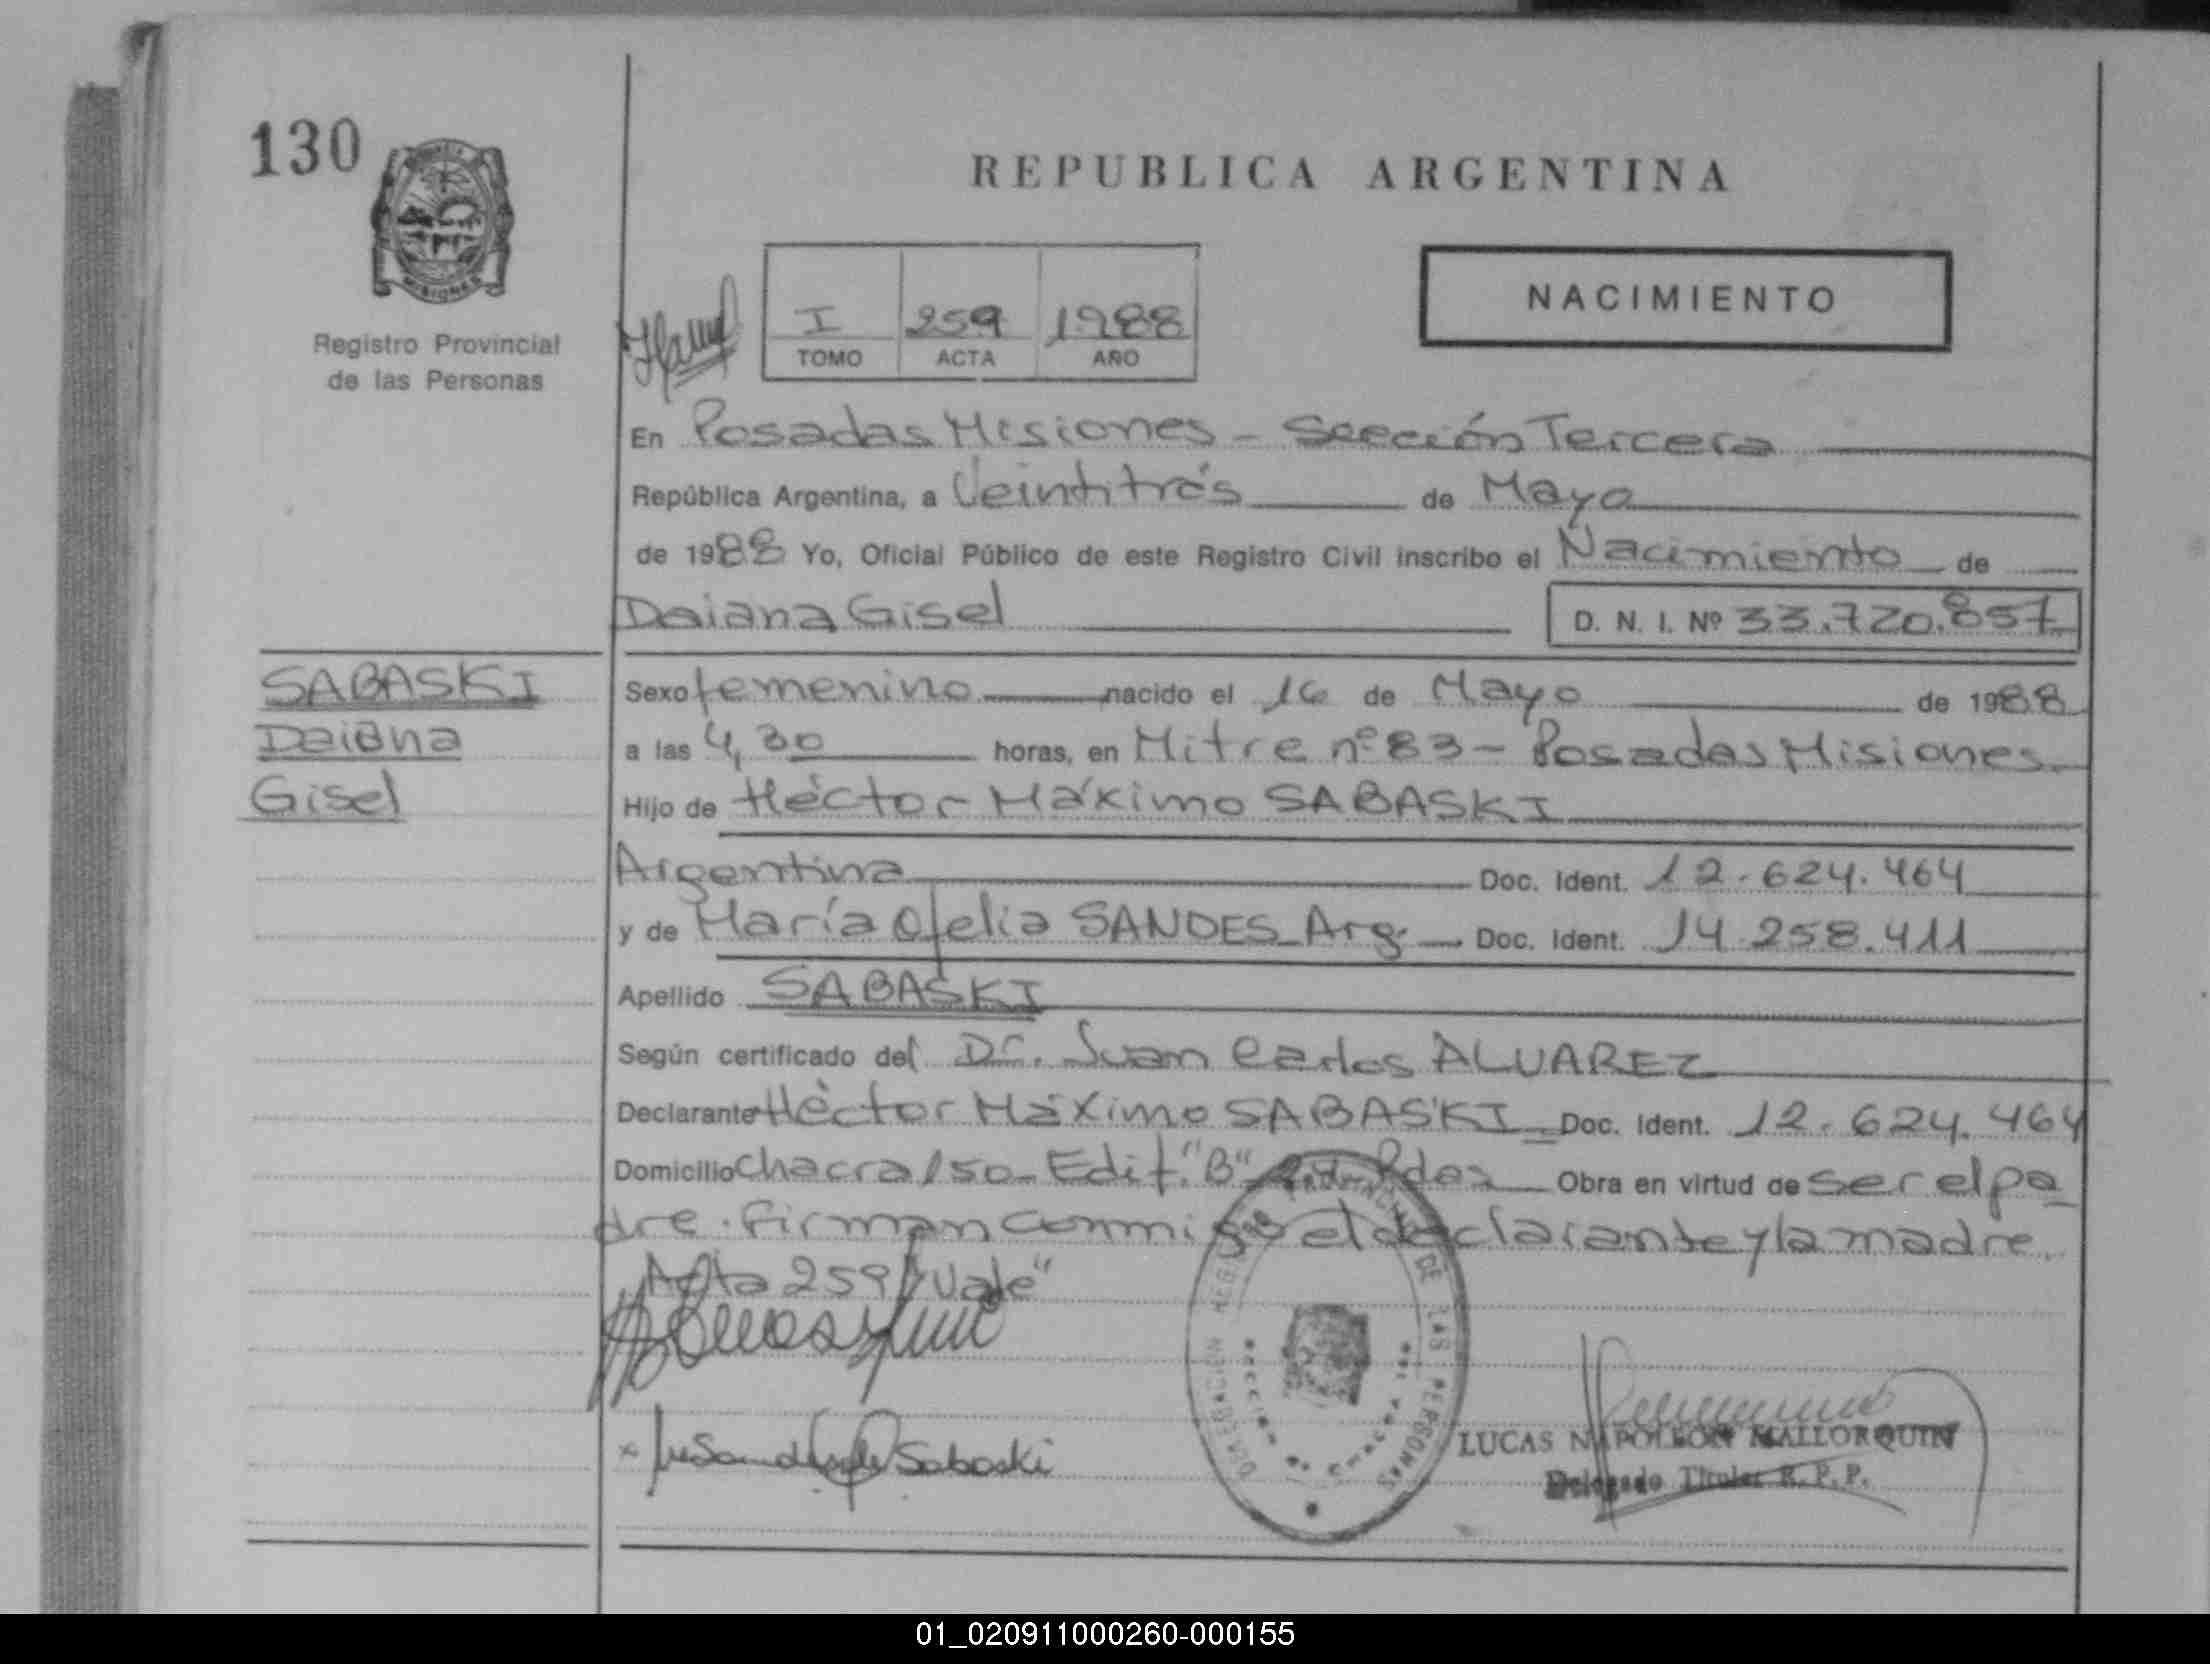 130
REPUBLICA ARGENTINA
MISIONES
Registro Provincial
de las Personas
I 259 1988
TOMO ACTA AÑO
NACIMIENTO
En Posadas Misiones - Sección Tercera
República Argentina, a Veintitrés de Mayo
de 1988 Yo, Oficial Público de este Registro Civil inscribo el Nacimiento de
Daiana Gisel D. N. I. Nº 33.720.857
SABASKI
Daiana
Gisel
Sexo femenino nacido el 16 de Mayo de 1988
a las 4,30 horas, en Mitre nº 83 - Posadas Misiones
Hijo de Héctor Máximo SABASKI
Argentina Doc. Ident. 12.624.464
y de María Ofelia SANDES Arg. Doc. Ident. 14.258.411
Apellido SABASKI
Según certificado del Dr. Juan Carlos ALVAREZ
Declarante Héctor Máximo SABASKI Doc. Ident. 12.624.464
Domicilio Chacra 150 - Edif. "B" Pdas Obra en virtud de ser el pa
dre. Firman conmigo el declarante y la madre.
Acta 259 "Vale"
x Sabaski
PROVINCIAL DE LAS PERSONAS
DELEGACIÓN
LUCAS NAPOLEÓN MALLORQUIN
Delegado Titular R. P. P.
01_020911000260-000155